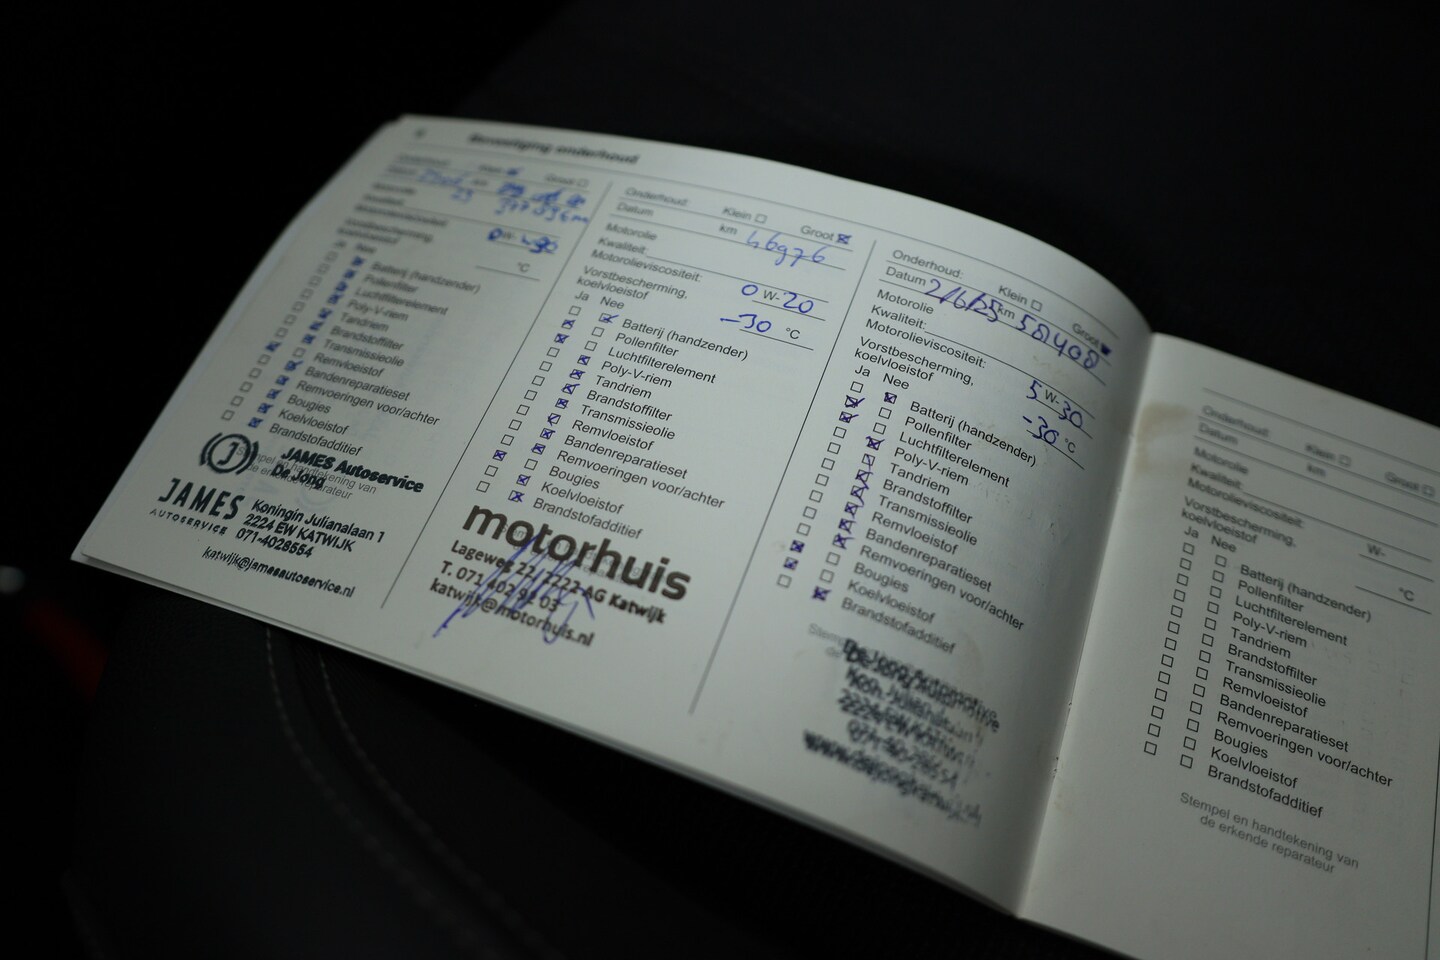 Bevestiging onderhoud
Klein
Groot
W-
°C
Ja Nee
Batterij (handzender)
Pollenfilter
Luchtfilterelement
Poly-V-riem
Tandriem
Brandstoffilter
Transmissieolie
Remvloeistof
Bandenreparatieset
Remvoeringen voor/achter
Bougies
Koelvloeistof
Brandstofadditief
Stempel en handtekening van
de erkende reparateur
JAMES Autoservice
De Jong
JAMES
AUTOSERVICE
Koningin Julianalaan 1
2224 EW KATWIJK
071-4028554
katwijk@jamesautoservice.nl
Onderhoud: Klein Groot
Datum km 46976
Motorolie
Kwaliteit:
Motorolieviscositeit: 0 W- 20
Vorstbescherming,
koelvloeistof -30 °C
Ja Nee
Batterij (handzender)
Pollenfilter
Luchtfilterelement
Poly-V-riem
Tandriem
Brandstoffilter
Transmissieolie
Remvloeistof
Bandenreparatieset
Remvoeringen voor/achter
Bougies
Koelvloeistof
Brandstofadditief
motorhuis
Lageweg 22, 2222 AG Katwijk
T. 071 402 93 03
katwijk@motorhuis.nl
Onderhoud: Klein Groot
Datum 2/6/25 km
Motorolie
Kwaliteit:
Motorolieviscositeit: 5 W- 30
Vorstbescherming,
koelvloeistof -30 °C
Ja Nee
Batterij (handzender)
Pollenfilter
Luchtfilterelement
Poly-V-riem
Tandriem
Brandstoffilter
Transmissieolie
Remvloeistof
Bandenreparatieset
Remvoeringen voor/achter
Bougies
Koelvloeistof
Brandstofadditief
Onderhoud: Klein Groot
Datum km
Motorolie
Kwaliteit:
Motorolieviscositeit: W-
Vorstbescherming,
koelvloeistof °C
Ja Nee
Batterij (handzender)
Pollenfilter
Luchtfilterelement
Poly-V-riem
Tandriem
Brandstoffilter
Transmissieolie
Remvloeistof
Bandenreparatieset
Remvoeringen voor/achter
Bougies
Koelvloeistof
Brandstofadditief
Stempel en handtekening van
de erkende reparateur